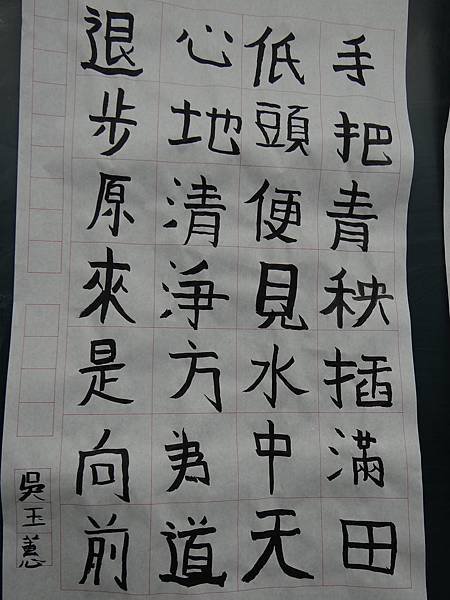 手把青秧插滿田
低頭便見水中天
心地清淨方為道
退步原來是向前
吳玉蕙